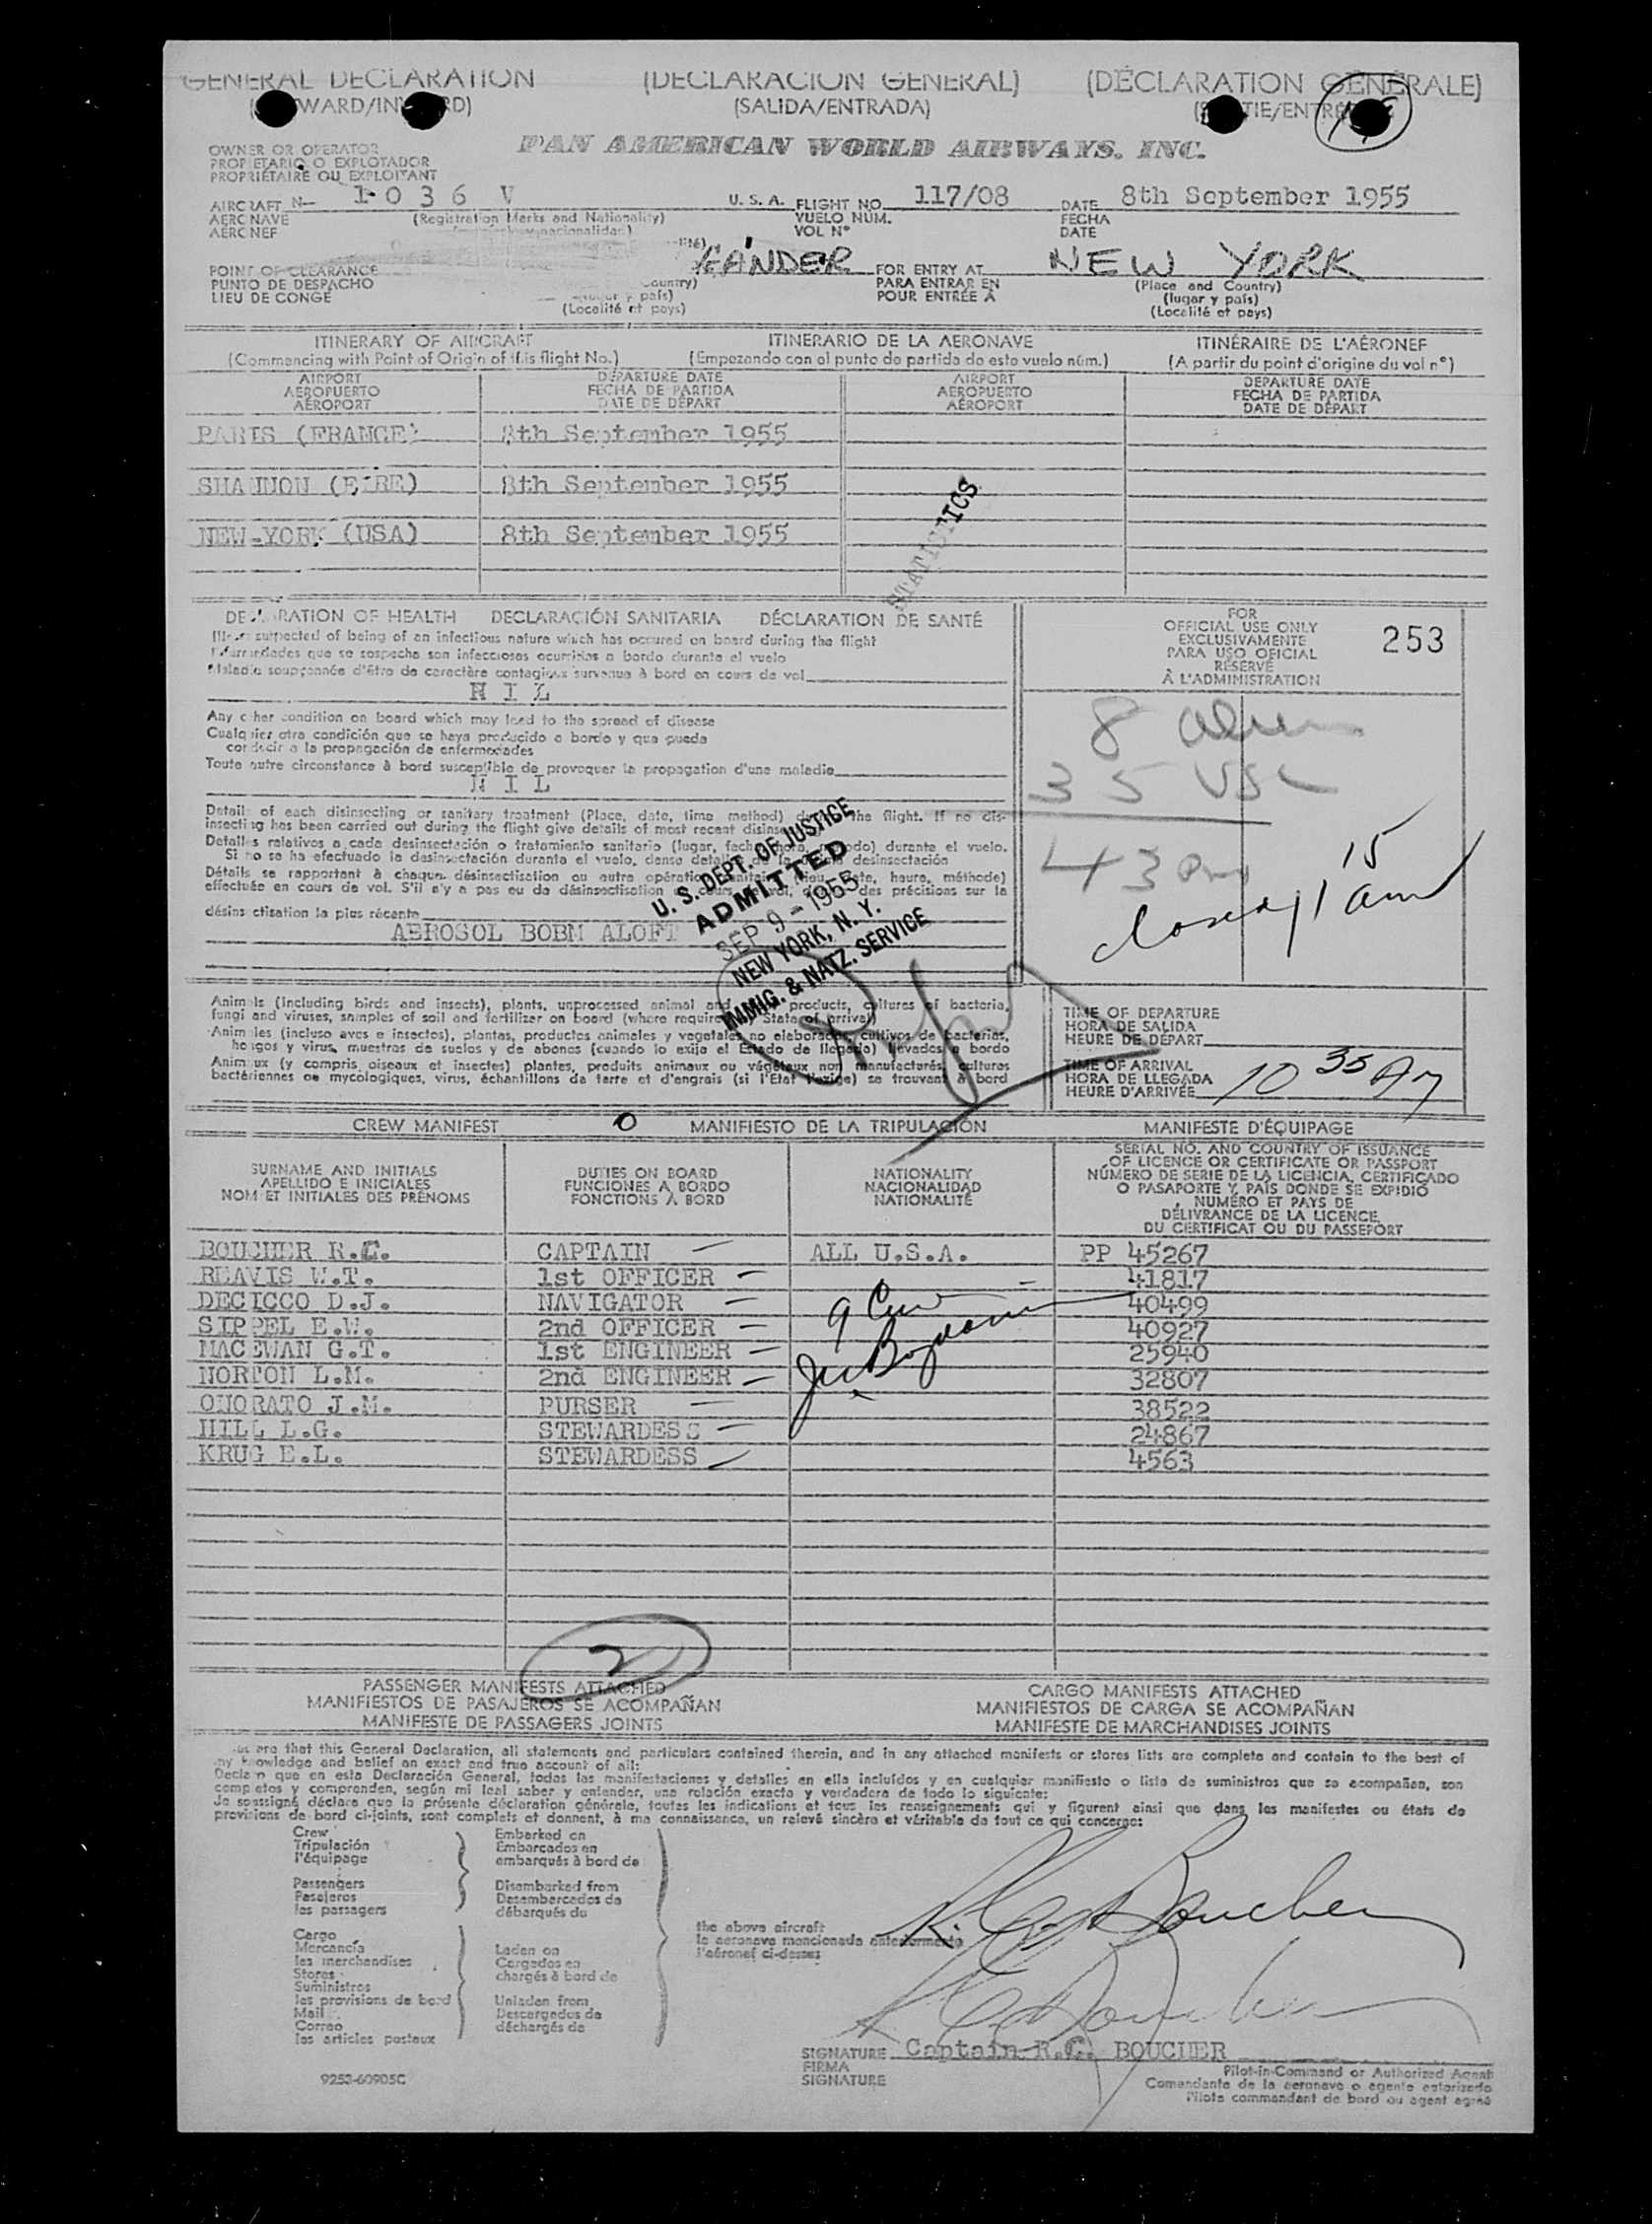 GENERAL DECLARATION (DECLARACIÓN GENERAL) (DÉCLARATION GÉNÉRALE)
(SALIDA/ENTRADA)
OWNER OR OPERATOR
PROPIETARIO O EXPLOTADOR
PROPRIÉTAIRE OU EXPLOITANT
PAN AMERICAN WORLD AIRWAYS, INC.
AIRCRAFT N- 1 0 3 6 V U. S. A. FLIGHT NO. 117/08 DATE 8th September 1955
AERONAVE (Registration Marks and Nationality) VUELO NÚM. FECHA
AÉRONEF VOL N° DATE
POINT OF CLEARANCE GANDER FOR ENTRY AT NEW YORK
PUNTO DE DESPACHO PARA ENTRAR EN (Place and Country)
LIEU DE CONGÉ POUR ENTRÉE À (lugar y país)
(Localité et pays) (Localité et pays)
ITINERARY OF AIRCRAFT ITINERARIO DE LA AERONAVE ITINÉRAIRE DE L'AÉRONEF
(Commencing with Point of Origin of this flight No.) (Empezando con el punto de partida de este vuelo núm.) (A partir du point d'origine du vol n°)
AIRPORT DEPARTURE DATE AIRPORT DEPARTURE DATE
AEROPUERTO FECHA DE PARTIDA AEROPUERTO FECHA DE PARTIDA
AÉROPORT DATE DE DÉPART AÉROPORT DATE DE DÉPART
PARIS (FRANCE) 8th September 1955
SHANNON (EIRE) 8th September 1955
NEW-YORK (USA) 8th September 1955
STATISTICS
DECLARATION OF HEALTH DECLARACIÓN SANITARIA DÉCLARATION DE SANTÉ
Illness suspected of being of an infectious nature which has occured on board during the flight
Enfermedades que se sospecha son infecciosas ocurridas a bordo durante el vuelo
Maladie soupçonnée d'être de caractère contagieux survenue à bord en cours de vol
N I L
Any other condition on board which may lead to the spread of disease
Cualquier otra condición que se haya producido a bordo y que pueda
conducir a la propagación de enfermedades
Toute autre circonstance à bord susceptible de provoquer la propagation d'une maladie
N I L
Details of each disinsecting or sanitary treatment (Place, date, time method) during the flight. If no dis-
insecting has been carried out during the flight give details of most recent disinsecting
Detalles relativos a cada desinsectación o tratamiento sanitario (lugar, fecha, hora, método) durante el vuelo.
Si no se ha efectuado la desinsectación durante el vuelo, dense detalles de la última desinsectación
Détails se rapportant à chaque désinsectisation ou autre opération sanitaire (lieu, date, heure, méthode)
effectuée en cours de vol. S'il n'y a pas eu de désinsectisation en cours de vol, donner des précisions sur la
désinsectisation la plus récente
AEROSOL BOBM ALOFT
U. S. DEPT. OF JUSTICE
ADMITTED
SEP 9 - 1955
NEW YORK, N. Y.
IMMIG. & NATZ. SERVICE
FOR
OFFICIAL USE ONLY
EXCLUSIVAMENTE
PARA USO OFICIAL
RÉSERVÉ
À L'ADMINISTRATION
253
8 alien
35 USC
43
closed 11 15 am
Animals (including birds and insects), plants, unprocessed animal and products, cultures of bacteria,
fungi and viruses, samples of soil and fertilizer on board (where required State of arrival)
Animales (incluso aves e insectos), plantas, productos animales y vegetales no elaborados, cultivos de bacterias,
hongos y virus, muestras de suelos y de abonos (cuando lo exija el Estado de llegada) llevados a bordo
Animaux (y compris oiseaux et insectes) plantes, produits animaux ou végétaux non manufacturés, cultures
bactériennes ou mycologiques, virus, échantillons de terre et d'engrais (si l'Etat l'exige) se trouvant à bord
TIME OF DEPARTURE
HORA DE SALIDA
HEURE DE DÉPART
TIME OF ARRIVAL
HORA DE LLEGADA
HEURE D'ARRIVÉE 10 35 AM
CREW MANIFEST O MANIFIESTO DE LA TRIPULACIÓN MANIFESTE D'ÉQUIPAGE
SURNAME AND INITIALS DUTIES ON BOARD NATIONALITY SERIAL NO. AND COUNTRY OF ISSUANCE
APELLIDO E INICIALES FUNCIONES A BORDO NACIONALIDAD OF LICENCE OR CERTIFICATE OR PASSPORT
NOM ET INITIALES DES PRÉNOMS FONCTIONS À BORD NATIONALITÉ NÚMERO DE SERIE DE LA LICENCIA, CERTIFICADO
O PASAPORTE Y PAÍS DONDE SE EXPIDIÓ
NUMÉRO ET PAYS DE
DÉLIVRANCE DE LA LICENCE
DU CERTIFICAT OU DU PASSEPORT
BOUCHER R.C. CAPTAIN ALL U.S.A. PP 45267
REAVIS W.T. 1st OFFICER 41817
DECICCO D.J. NAVIGATOR 9 Crew 40499
SIPPEL E.W. 2nd OFFICER 40927
MACEWAN G.T. 1st ENGINEER 25940
NORTON L.M. 2nd ENGINEER 32807
ONORATO J.M. PURSER 38522
HILL L.G. STEWARDESS 24867
KRUG E.L. STEWARDESS 4563
2
PASSENGER MANIFESTS ATTACHED CARGO MANIFESTS ATTACHED
MANIFIESTOS DE PASAJEROS SE ACOMPAÑAN MANIFIESTOS DE CARGA SE ACOMPAÑAN
MANIFESTE DE PASSAGERS JOINTS MANIFESTE DE MARCHANDISES JOINTS
that this General Declaration, all statements and particulars contained therein, and in any attached manifests or stores lists are complete and contain to the best of
my knowledge and belief an exact and true account of all:
Declaro que en esta Declaración General, todas las manifestaciones y detalles en ella incluídos y en cualquier manifiesto o lista de suministros que se acompañan, son
completos y comprenden, según mi leal saber y entender, una relación exacta y verdadera de todo lo siguiente:
Je soussigné déclare que la présente déclaration générale, toutes les indications et tous les renseignements qui y figurent ainsi que dans les manifestes ou états de
provisions de bord ci-joints, sont complets et donnent, à ma connaissance, un relevé sincère et véritable de tout ce qui concerne:
Crew Embarked on
Tripulación Embarcados en
l'équipage embarqués à bord de
Passengers Disembarked from
Pasajeros Desembarcados de
les passagers débarqués du
the above aircraft
la aeronave mencionada anteriormente
l'aéronef ci-dessus
Cargo
Mercancía Laden on
les merchandises Cargados en
Stores chargés à bord de
Suministros
les provisions de bord Unladen from
Mail Descargados de
Correo déchargés de
les articles postaux
R. C. Boucher
R C Boucher
SIGNATURE Captain R.C. BOUCHER
FIRMA Pilot-in-Command or Authorized Agent
SIGNATURE Comandante de la aeronave o agente autorizado
Pilote commandant de bord ou agent agréé
9253-60905C